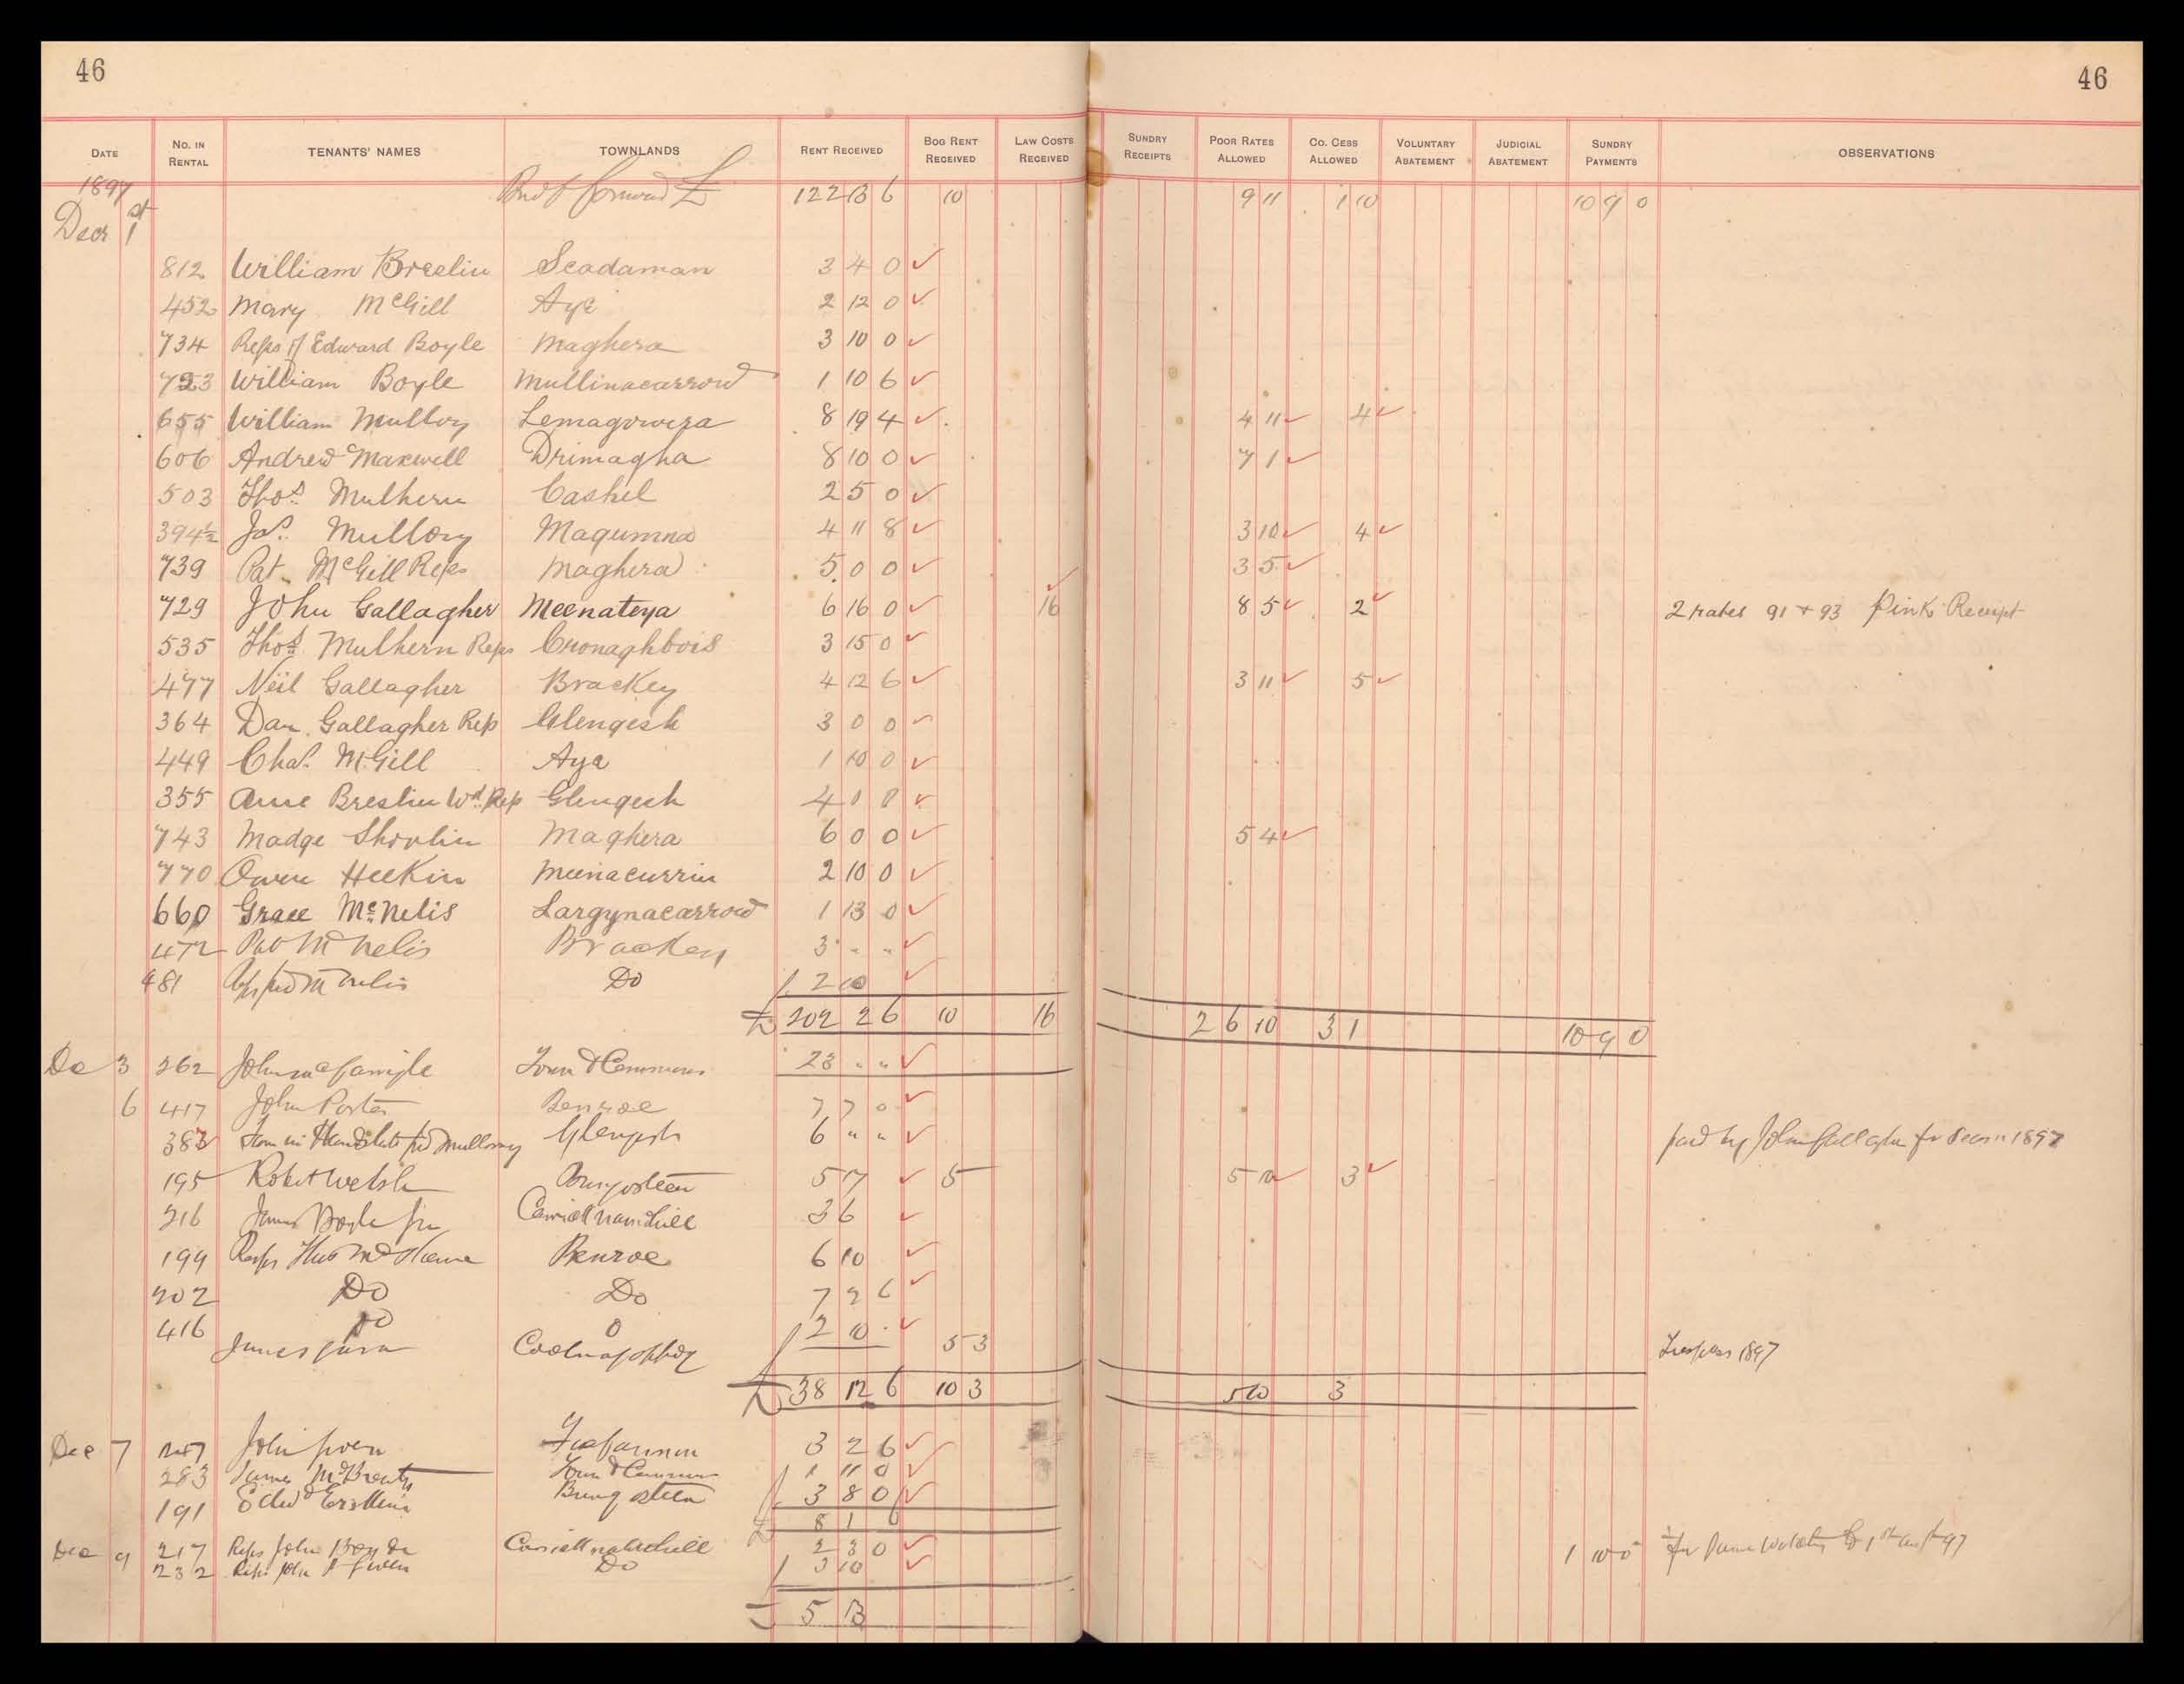 46 46
DATE No. IN RENTAL TENANTS' NAMES TOWNLANDS RENT RECEIVED BOG RENT RECEIVED LAW COSTS RECEIVED SUNDRY RECEIPTS POOR RATES ALLOWED CO. CESS ALLOWED VOLUNTARY ABATEMENT JUDICIAL ABATEMENT SUNDRY PAYMENTS OBSERVATIONS
1897 Brot forward £ 122 13 6 10 9 11 1 10 10 9 0
Decr 1st
812 William Breslin Scadaman 3 4 0
452 Mary McGill Aye 2 12 0
734 Reps of Edward Boyle Maghera 3 10 0
723 William Boyle Mullinacarrow 1 10 6
655 William Mulloy Lemagowra 8 19 4 4 11 4
606 Andrew Maxwell Drimagha 8 10 0 7 1
503 Thos. Mulhern Cashel 2 5 0
394½ Jas. Mulloy Magumna 4 11 8 3 10 4
739 Pat McGill Reps Maghera 5 0 0 3 5
729 John Gallagher Meenateya 6 16 0 16 8 5 2 2 rates 91 + 93 Pink Receipt
535 Thos. Mulhern Reps Cronaghbois 3 15 0
477 Neil Gallagher Brackey 4 12 6 3 11 5
364 Dan Gallagher Rep Glengesh 3 0 0
449 Chas. McGill Aya 1 10 0
355 Anne Breslin Wd. Rep Glengesh 4 0 0
743 Madge Shovlin Maghera 6 0 0 5 4
770 Owen Heekin Meenacurrin 2 10 0
660 Grace McNelis Largynacarrow 1 13 0
472 Pat McNelis Brackey 3 " "
481 McNelis Do 2 10
£ 202 2 6 10 16 2 6 10 3 1 10 9 0
De 3 262 John Town & Commons 23 " "
6 417 John Porter Benroe 7 7 0
383 Farm in Hands Glengesh 6 " " paid by John Gallagher for season 1897
195 Robert Welsh 5 17 5 5 10 3
216 James Boyle Jnr 3 6
199 Reps Thos Benroe 6 10
202 Do Do 7 2 6
416 Do 2 10
James 5 3 Trespass 1897
£ 38 12 6 10 3 5 10 3
Dec 7 247 John 3 2 6
283 James Town & Commons 1 11 0
191 Edwd 3 8 0
£ 8 1 6
Dec 9 217 Reps John 2 3 0 1 10 0
232 Reps John Do 3 10
5 13